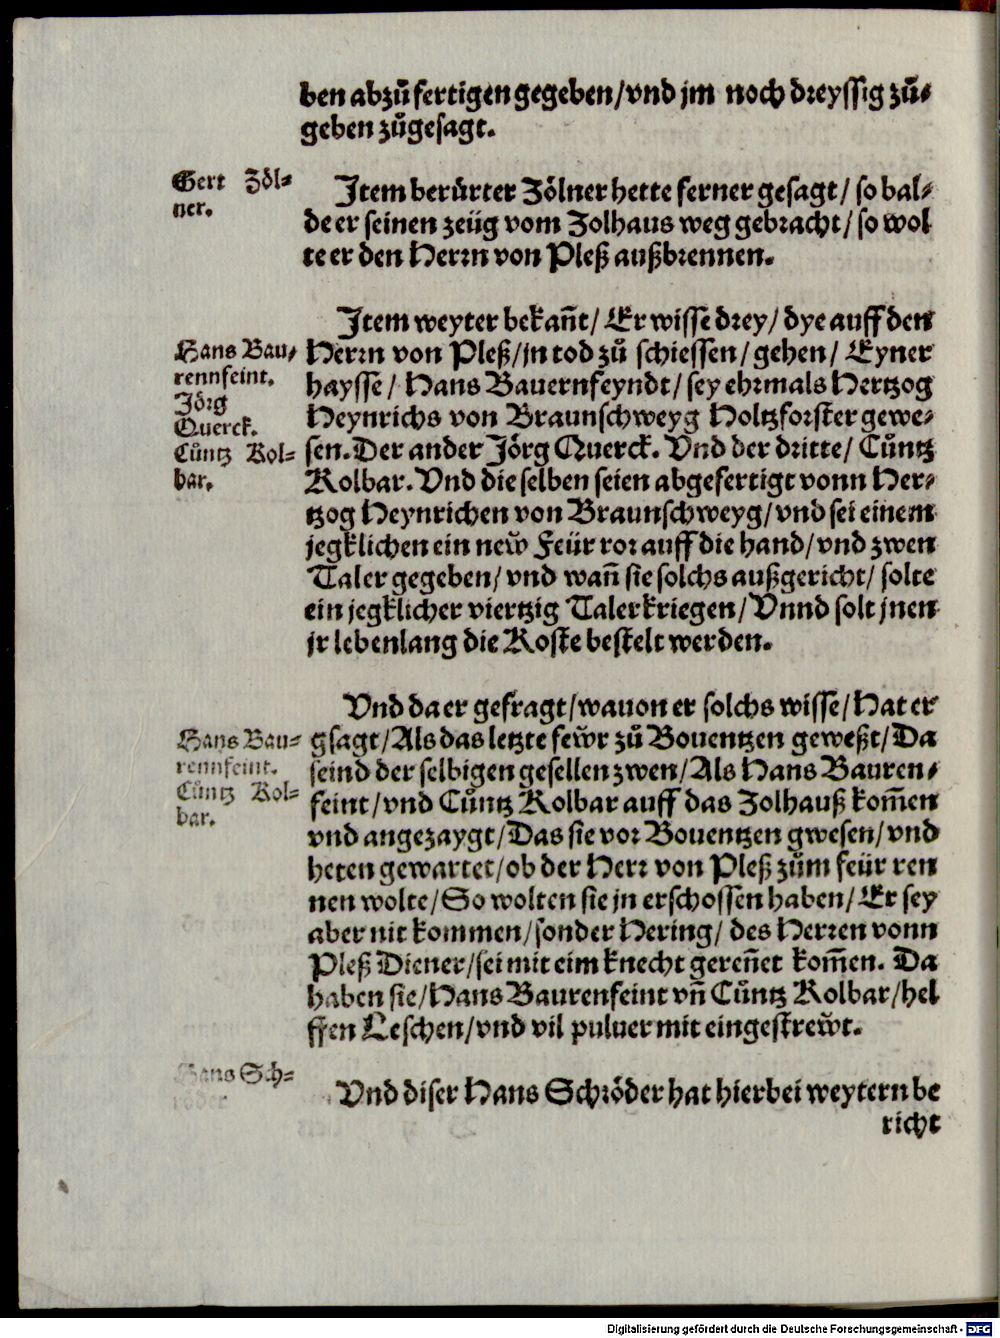 ben abzuͦfertigen gegeben/vnd jm noch dreyssig zuͦ-
geben zuͦgesagt.
Gert Zöl-
ner.
Item berürter Zölner hette ferner gesagt/ so bal-
de er seinen zeüg vom Zolhaus weg gebracht/ so wol
te er den Herrn von Pleß außbrennen.
Item weyter bekañt/ Er wisse drey/ dye auff den
Hans Bau-
rennfeint.
Jörg
Querck.
Cuͦntz Kol-
bar.
Herrn von Pleß/jn tod zuͦ schiessen/gehen/ Eyner
haysse/ Hans Bauernfeyndt/ sey ehrmals Hertzog
Heynrichs von Braunschweyg Holtzforster gewe-
sen. Der ander Jörg Querck. Vnd der dritte/ Cuͦntz
Kolbar. Vnd die selben seien abgefertigt vonn Her-
tzog Heynrichen von Braunschweyg/vnd sei einem
jegklichen ein new̃ Feür ror auff die hand/vnd zwen
Taler gegeben/vnd wañ sie solchs außgericht/ solte
ein jegklicher viertzig Taler kriegen/Vnnd solt jnen
jr lebenlang die Koste bestelt werden.
Vnd da er gefragt/wauon er solchs wisse/Hat er
Hans Bau-
rennfeint.
Cuͦntz Kol-
bar.
gsagt/Als das letzte few̃r zuͦ Bouentzen geweßt/Da
seind der selbigen gesellen zwen/Als Hans Bauren-
feint/vnd Cuͦntz Kolbar auff das Zolhauß kom̃en
vnd angezaygt/Das sie vor Bouentzen gwesen/vnd
heten gewartet/ob der Herr von Pleß zuͦm feür ren
nen wolte/So wolten sie jn erschossen haben/Er sey
aber nit kommen/sonder Hering/ des Herren vonn
Pleß Diener/sei mit eim knecht gereñet kom̃en. Da
haben sie/Hans Baurenfeint vñ Cuͦntz Kolbar/hel
ffen Leschen/vnd vil puluer mit eingestrew̃t.
Hans Sch-
röder
Vnd diser Hans Schröder hat hierbei weytern be
richt
Digitalisierung gefördert durch die Deutsche Forschungsgemeinschaft - DFG